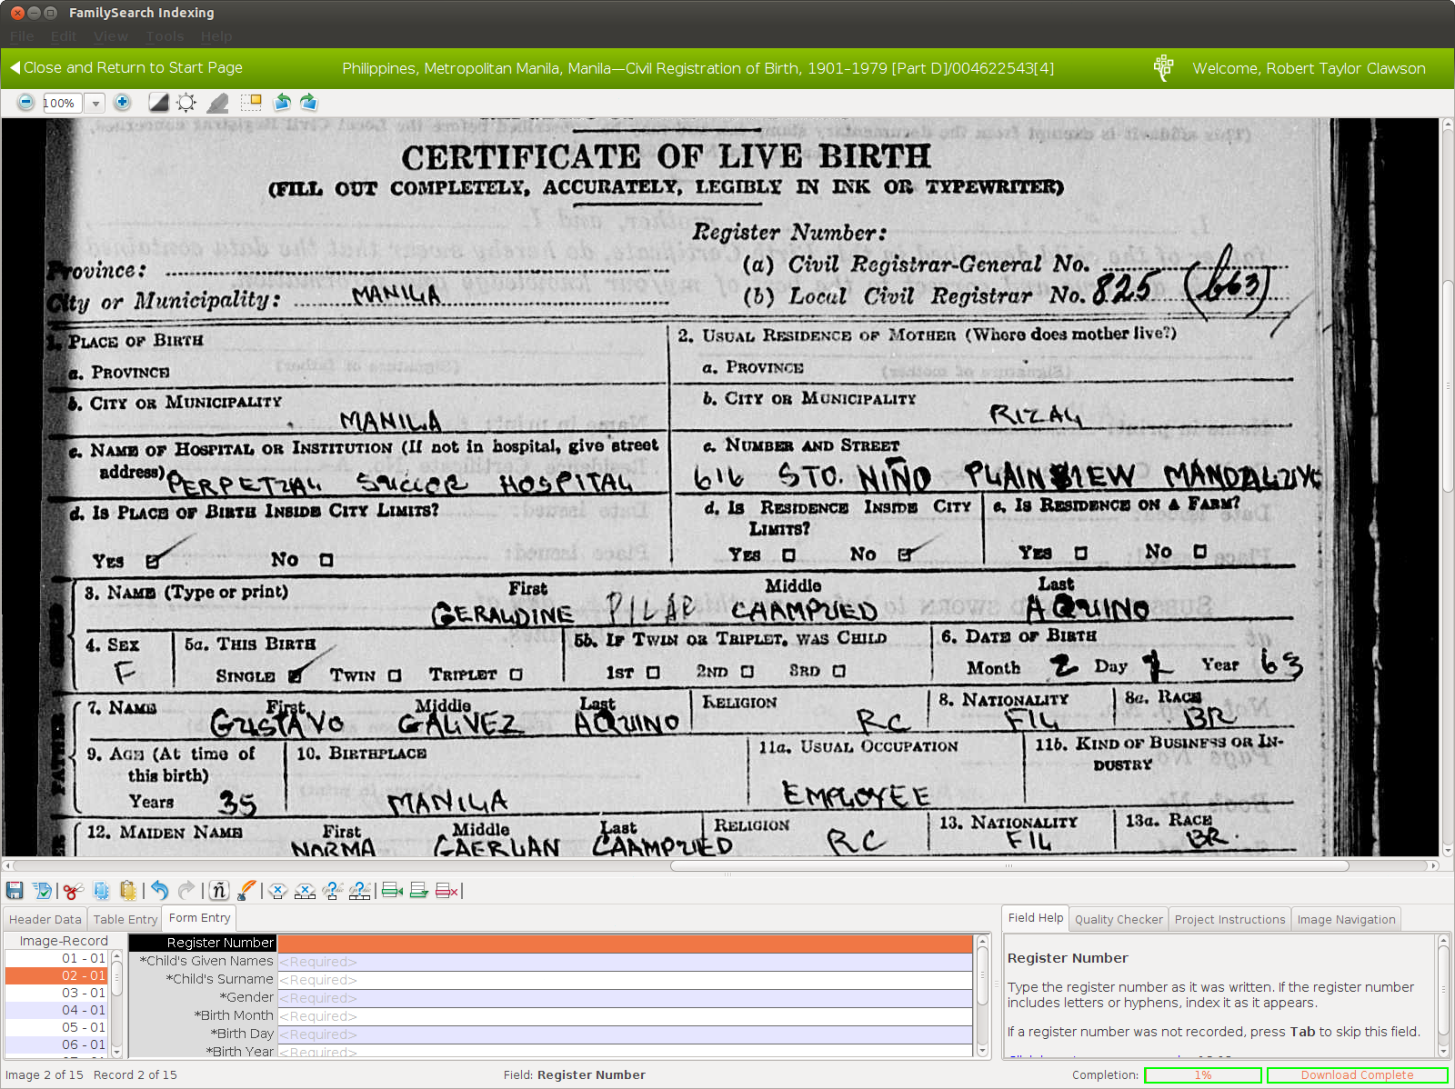 FamilySearch Indexing
File Edit View Tools Help
Close and Return to Start Page
Philippines, Metropolitan Manila, Manila—Civil Registration of Birth, 1901-1979 [Part D]/004622543[4]
Welcome, Robert Taylor Clawson
100%
CERTIFICATE OF LIVE BIRTH
(FILL OUT COMPLETELY, ACCURATELY, LEGIBLY IN INK OR TYPEWRITER)
Register Number:
Province:
(a) Civil Registrar-General No.
City or Municipality: MANILA
(b) Local Civil Registrar No. 825 (663)
1. PLACE OF BIRTH
2. USUAL RESIDENCE OF MOTHER (Where does mother live?)
a. PROVINCE
a. PROVINCE
b. CITY OR MUNICIPALITY
MANILA
b. CITY OR MUNICIPALITY
RIZAL
c. NAME OF HOSPITAL OR INSTITUTION (If not in hospital, give street address)
PERPETUAL SUCCOR HOSPITAL
c. NUMBER AND STREET
616 STO. NIÑO PLAINVIEW
d. IS PLACE OF BIRTH INSIDE CITY LIMITS?
YES NO
d. IS RESIDENCE INSIDE CITY LIMITS?
YES NO
e. IS RESIDENCE ON A FARM?
YES NO
3. NAME (Type or print)
First Middle Last
GERALDINE PILAR AQUINO
4. SEX
F
5a. THIS BIRTH
SINGLE TWIN TRIPLET
5b. IF TWIN OR TRIPLET, WAS CHILD
1ST 2ND 3RD
6. DATE OF BIRTH
Month 2 Day Year 63
FATHER
7. NAME First Middle Last
GUSTAVO GALVEZ AQUINO
RELIGION
RC
8. NATIONALITY
FIL
8a. RACE
BR
9. AGE (At time of this birth)
Years 35
10. BIRTHPLACE
MANILA
11a. USUAL OCCUPATION
EMPLOYEE
11b. KIND OF BUSINESS OR INDUSTRY
12. MAIDEN NAME First Middle Last
NORMA GAERLAN
RELIGION
RC
13. NATIONALITY
FIL
13a. RACE
BR.
ñ
Header Data Table Entry Form Entry
Image-Record
01 - 01
02 - 01
03 - 01
04 - 01
05 - 01
06 - 01
Register Number
*Child's Given Names <Required>
*Child's Surname <Required>
*Gender <Required>
*Birth Month <Required>
*Birth Day <Required>
*Birth Year <Required>
Field Help Quality Checker Project Instructions Image Navigation
Register Number
Type the register number as it was written. If the register number
includes letters or hyphens, index it as it appears.
If a register number was not recorded, press Tab to skip this field.
Image 2 of 15 Record 2 of 15
Field: Register Number
Completion: 1% Download Complete